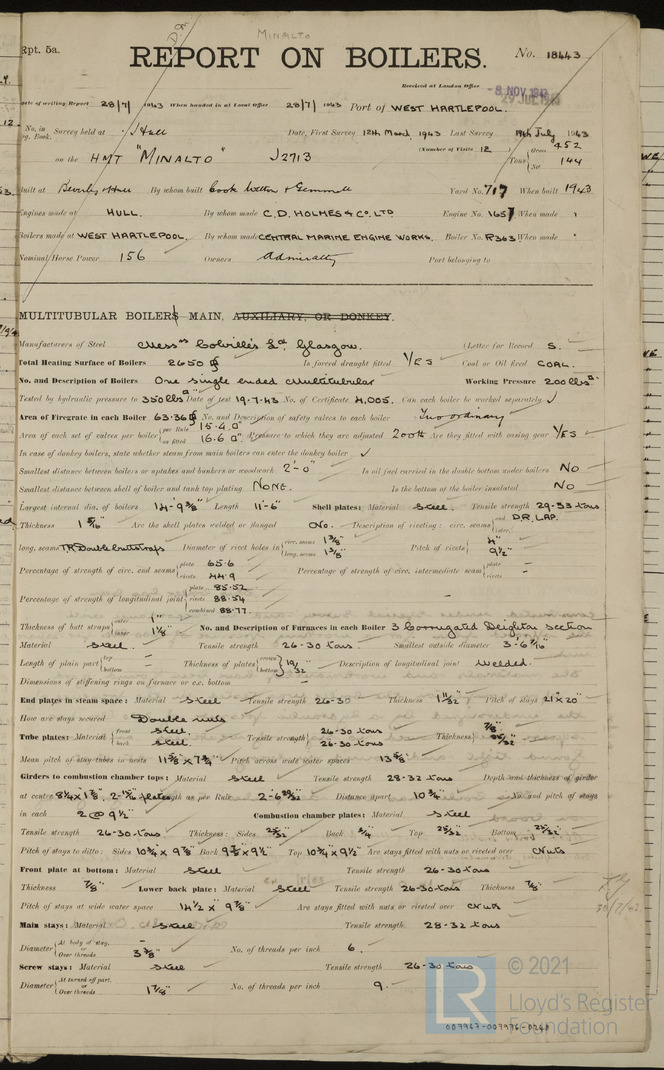 MINALTO
Rpt. 5a.
REPORT ON BOILERS.
No. 18443
Received at London Office
-8 NOV 1943
29 JUL 1943
Date of writing Report 28/7/ 1943 When handed in at Local Office 28/7/ 1943 Port of WEST HARTLEPOOL.
No. in Survey held at Hull Date, First Survey 12th March 1943 Last Survey 19th July 1943
Reg. Book.
(Number of Visits 12 ) Gross 452
on the HMT "MINALTO" J2713 Tons Net 144
Built at Beverley & Hull By whom built Cook Welton & Gemmell Yard No. 717 When built 1943
Engines made at HULL. By whom made C.D. HOLMES & CO. LTD Engine No. 1657 When made "
Boilers made at WEST HARTLEPOOL. By whom made CENTRAL MARINE ENGINE WORKS. Boiler No. R363 When made "
Nominal Horse Power 156 Owners Admiralty Port belonging to
MULTITUBULAR BOILERS MAIN, AUXILIARY, OR DONKEY.
Manufacturers of Steel Messrs Colvilles Ld. Glasgow. (Letter for Record S.
Total Heating Surface of Boilers 2650 Is forced draught fitted YES Coal or Oil fired COAL.
No. and Description of Boilers One single ended Multitubular Working Pressure 200 lbs
Tested by hydraulic pressure to 350 lbs Date of test 19.7.43 No. of Certificate 4,005. Can each boiler be worked separately ✓
Area of Firegrate in each Boiler 63.36 No. and Description of safety valves to each boiler Two ordinary
Area of each set of valves per boiler per Rule 15.4.0" as fitted 16.6 Pressure to which they are adjusted 200 Are they fitted with easing gear YES
In case of donkey boilers, state whether steam from main boilers can enter the donkey boiler ✓
Smallest distance between boilers or uptakes and bunkers or woodwork 2'-0" Is oil fuel carried in the double bottom under boilers NO
Smallest distance between shell of boiler and tank top plating NONE. Is the bottom of the boiler insulated NO
Largest internal dia. of boilers 14'-9 3/8" Length 11'-6" Shell plates: Material Steel. Tensile strength 29-33 tons
Thickness 1 5/16" Are the shell plates welded or flanged No. Description of riveting: circ. seams end D.R. LAP. inter.
long. seams TR Double buttstraps Diameter of rivet holes in circ. seams 1 3/8" long. seams 1 3/8" Pitch of rivets 4" 9 1/2"
Percentage of strength of circ. end seams plate 65.6 rivets 44.9 Percentage of strength of circ. intermediate seam plate rivets
Percentage of strength of longitudinal joint plate 85.52 rivets 88.54 combined 88.77
Thickness of butt straps outer 1" inner 1 1/8" No. and Description of Furnaces in each Boiler 3 Corrugated Deighton section
Material Steel. Tensile strength 26-30 tons. Smallest outside diameter 3'-6 9/16"
Length of plain part top bottom Thickness of plates crown bottom 19/32" Description of longitudinal joint Welded.
Dimensions of stiffening rings on furnace or c.c. bottom
End plates in steam space: Material Steel Tensile strength 26-30 Thickness 1 11/32" Pitch of stays 21" x 20"
How are stays secured Double nuts
Tube plates: Material front Steel. back Steel. Tensile strength 26-30 tons 26-30 tons Thickness 7/8"
Mean pitch of stay tubes in nests 11 5/8" x 7 3/4" Pitch across wide water spaces 13 5/8"
Girders to combustion chamber tops: Material Steel Tensile strength 28-32 tons Depth and thickness of girder
at centre 8 1/4 x 1 5/8", 2-15/16 plates Length as per Rule 2'-6 29/32" Distance apart 10 3/4" No. and pitch of stays
in each 2 @ 9 1/2" Combustion chamber plates: Material Steel
Tensile strength 26-30 tons Thickness: Sides 25/32" Back 3/4" Top 25/32" Bottom 25/32"
Pitch of stays to ditto: Sides 10 3/4 x 9 7/8" Back 9 5/8 x 9 1/2" Top 10 3/4 x 9 1/2" Are stays fitted with nuts or riveted over Nuts
Front plate at bottom: Material Steel Tensile strength 26-30 tons
Thickness 7/8" Lower back plate: Material Steel Tensile strength 26-30 tons Thickness 7/8"
Pitch of stays at wide water space 14 1/2 x 9 7/8" Are stays fitted with nuts or riveted over Nuts
Main stays: Material Steel Tensile strength 28-32 tons
Diameter At body of stay, or Over threads 3 3/8" No. of threads per inch 6.
Screw stays: Material Steel Tensile strength 26-30 tons
Diameter At turned off part, or Over threads 1 7/8" No. of threads per inch 9.
© 2021
LR Lloyd's Register
Foundation
007967-007976-0248